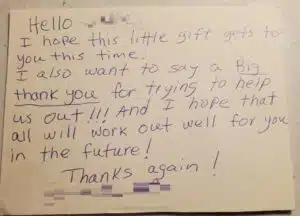 Hello
I hope this little gift gets to
you this time.
I also want to say a Big
thank you for trying to help
us out!!! And I hope that
all will work out well for you
in the future!
Thanks again!